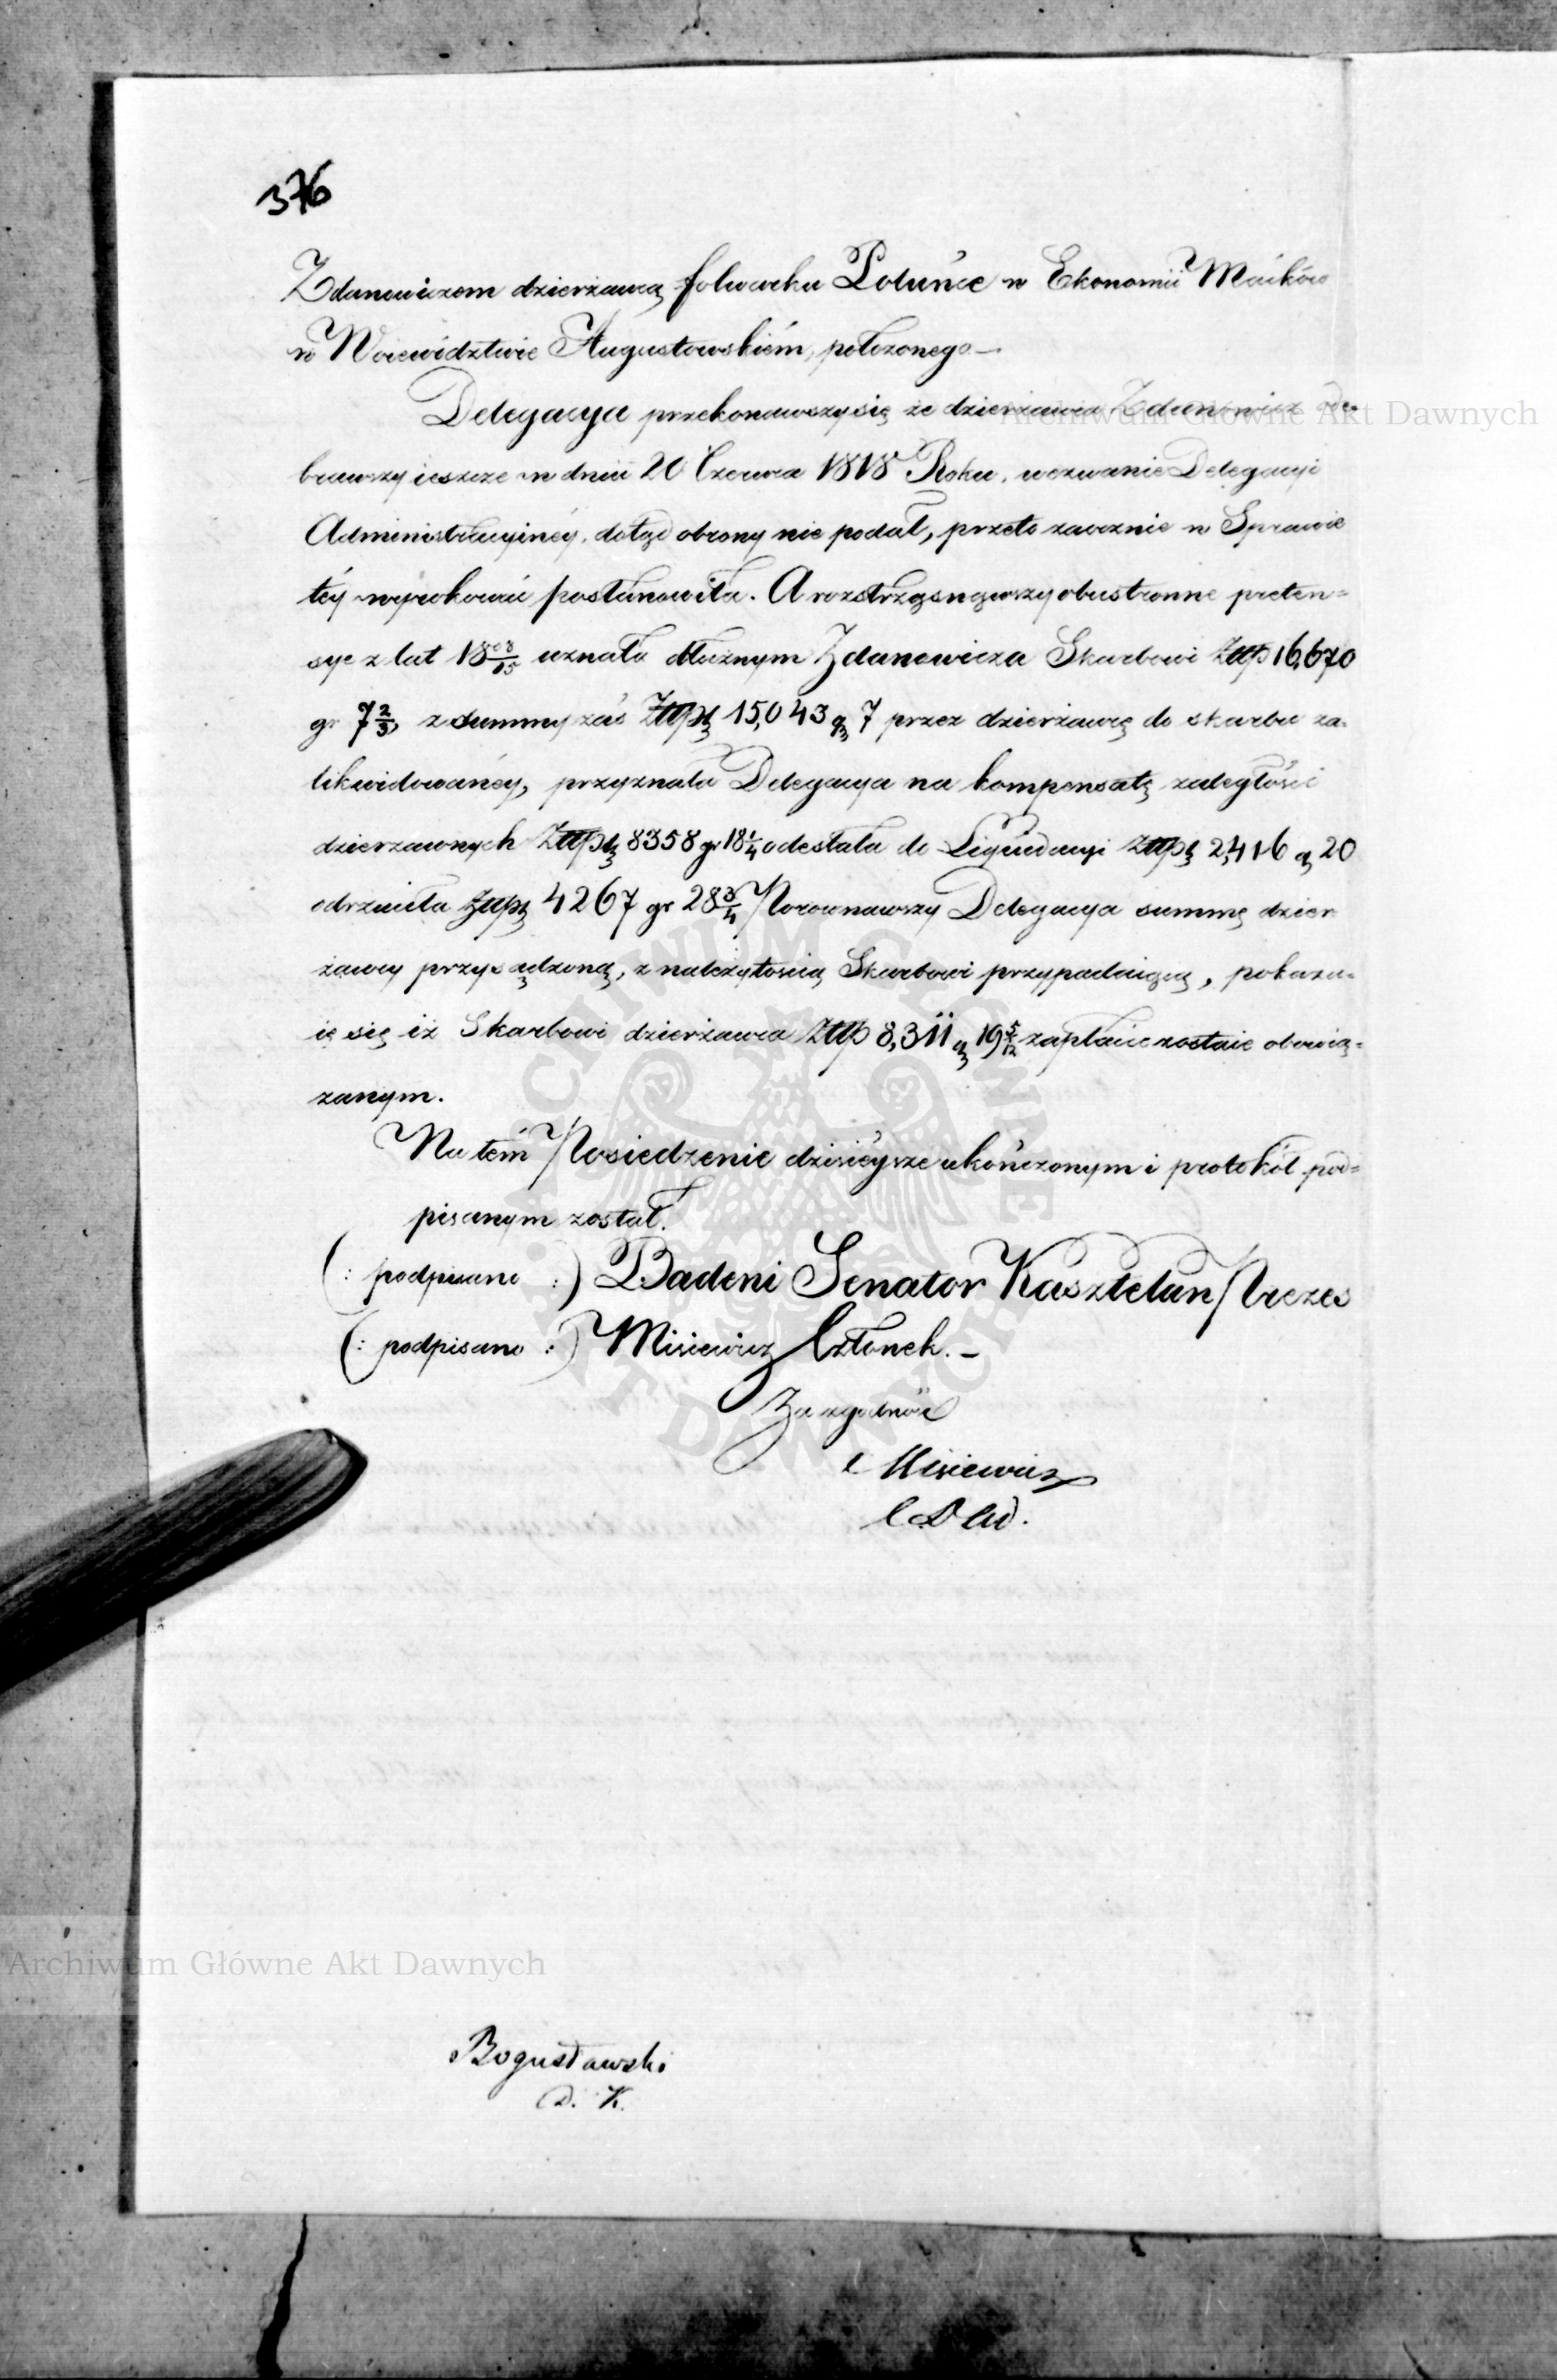 376
Zdanowiczem dzierzawcą folwarku Poluńce w Ekonomii Maćków
w Woiewództwie Augustowskiém, położonego —
Delegacya przekonawszy się że dzierzawca Zdanowicz ode-
brawszy ieszcze w dniu 20 Czerwca 1818 Roku, wezwanie Delegacyi
Administracyinéy, dotąd obrony nie podał, przeto zaocznie w Sprawie
téy wyrokować postanowiła. A roztrząsnąwszy obustronne preten=
sye z lat 18 08/15 uznała dłużnym Zdanowicza Skarbowi Złtp 16,670
gr 7 2/3, z summy zaś Złtpl 15,043 g 7 przez dzierżawcę do skarbu za-
likwidowanéy, przyznała Delegacya na kompensatę zaległości
dzierzawnych Złtpl 8358 gr 18 1/4 odesłała do Liquidacyi Złtpl 2,416 g 20
odrzuciła Złtpl 4267 gr 28 3/4 Porownawszy Delegacya summę dzier
żawcy przysądzoną, z należytością Skarbowi przypadaiącą, pokazu-
ie się iż Skarbowi dzierżawca Złtp 8,311 g 19 5/12 zapłacić zostaie obowią=
zanym.
Na tém Posiedzenie dzisieysze ukończonym i protokół pod=
pisanym został.
(: podpisano :) Badeni Senator Kasztelan Prezes
(: podpisano :) Misiewicz Członek. –
Za zgodność
Misiewicz
C D Ad.
Bogusławski
D. K.
Archiwum Główne Akt Dawnych
Archiwum Główne Akt Dawnych
ARCHIWUM GŁÓWNE AKT DAWNYCH